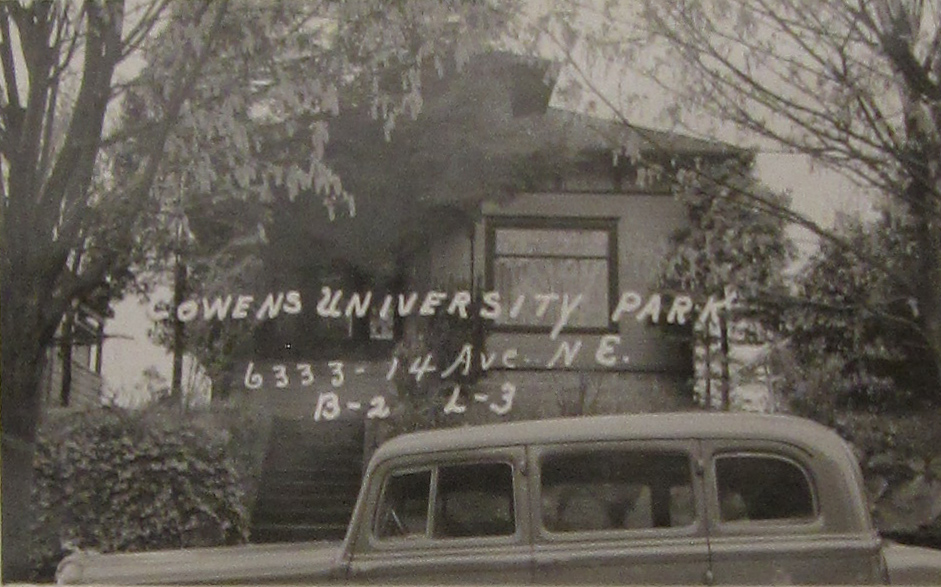 COWENS UNIVERSITY PARK
6333-14 Ave. N E.
B-2 L-3